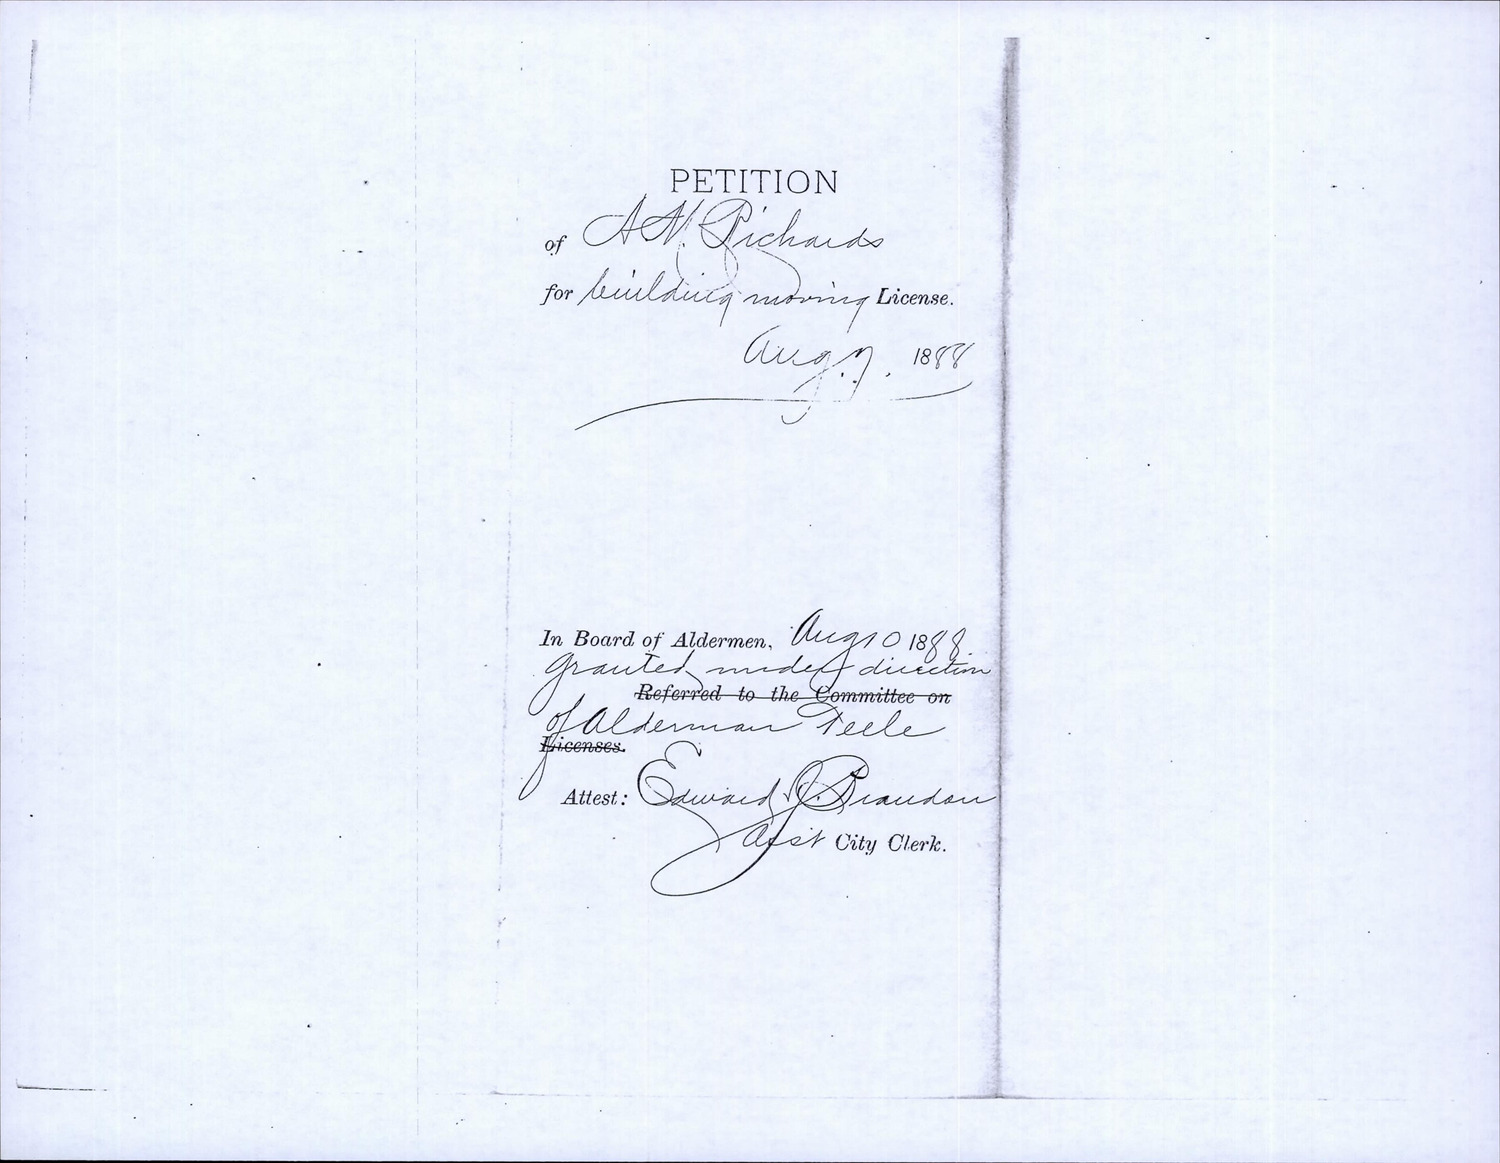 PETITION
of A. N. Richards
for building moving License.
Aug. 7. 1888
In Board of Aldermen, Aug 10 1888.
Granted under direction
Referred to the Committee on
of Alderman Teele
Licenses.
Attest: Edward J. Brandon
Asst City Clerk.